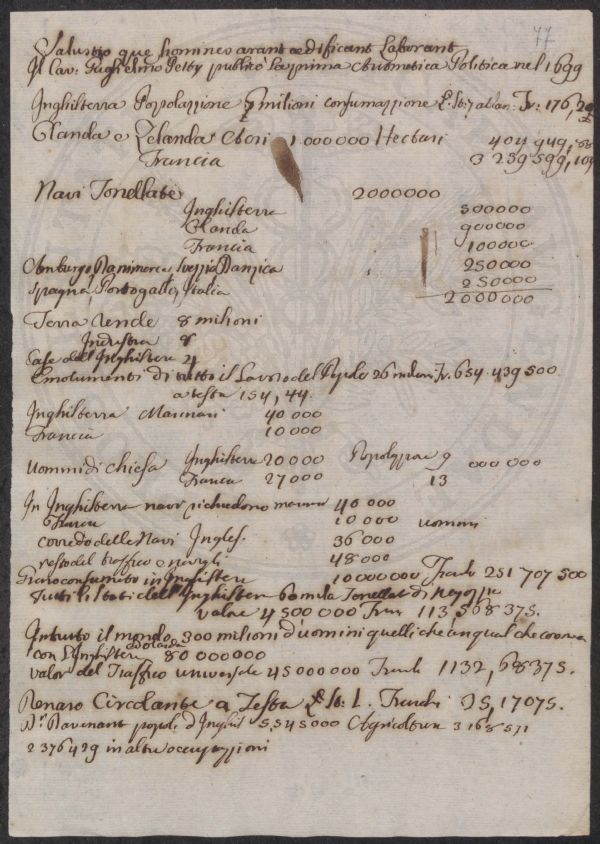 77
Salustio que homines arant aedificant Laborant
Il Cav: Guglielmo Petty publicò la prima Aritmetica Politica nel 1699
Inghilterra Popolazione 7 milioni consumazione L. St: 7 a l'an: Fr: 176,
Olanda e Zelanda 1 000000 Hectari 404 949,
Francia 3 239 599, 109
Navi Tonellate 2000000
Inghilterra 500000
Olanda 900000
Francia 100000
Amburgo, Danimarca, Svezia Danzica 250000
Spagna, Portogallo, Italia 250000
2000000
Terra rende 8 milioni
Industria 8
Case dell Inghilterra 4
Emolumenti di tutto il Lavoro del Popolo 26 milioni Fr. 654. 439 500
a testa 154, 44.
Inghilterra Marinari 40 000
Francia 10 000
Uommi di chiesa Inghilterra 20000 Popolazione 9 000 000
Francia 27 000 13
In Inghilterra navi richiedono 40 000
Francia 10 000 uomini
corredo delle Navi Ingles. 36 000
resto del traffico e navigli 48 000
Grano consumato in Inghilterra 10 000000 Franchi 251 707 500
Tutti li Stati dell Inghilterra 60 mila Tonellate di
valore 4 500 000 Fran 113 568 375.
In tutto il mondo 300 milioni d'uomini quelli che an qualche
con L'Inghilterra e Olanda 80 000000
valor del Traffico universale 45 000000 Franchi 1132, 68375.
Denaro Circolante a Testa L St: 1. Franchi 35, 17075.
Dr. Davenant popoli d'Inghil 5,545000 Agricoltura 3 168 571
2 376 429 in altre occupazioni